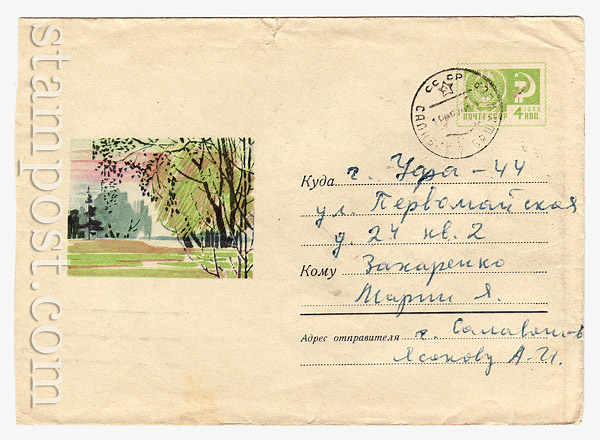 stampost.com
СССР
ПОЧТА СССР 4 КОП.
1966
Куда г. Уфа-44
ул. Первомайская
д. 24 кв. 2
Кому Захаренко
Марии Я.
Адрес отправителя г. Салават-6
А-И.